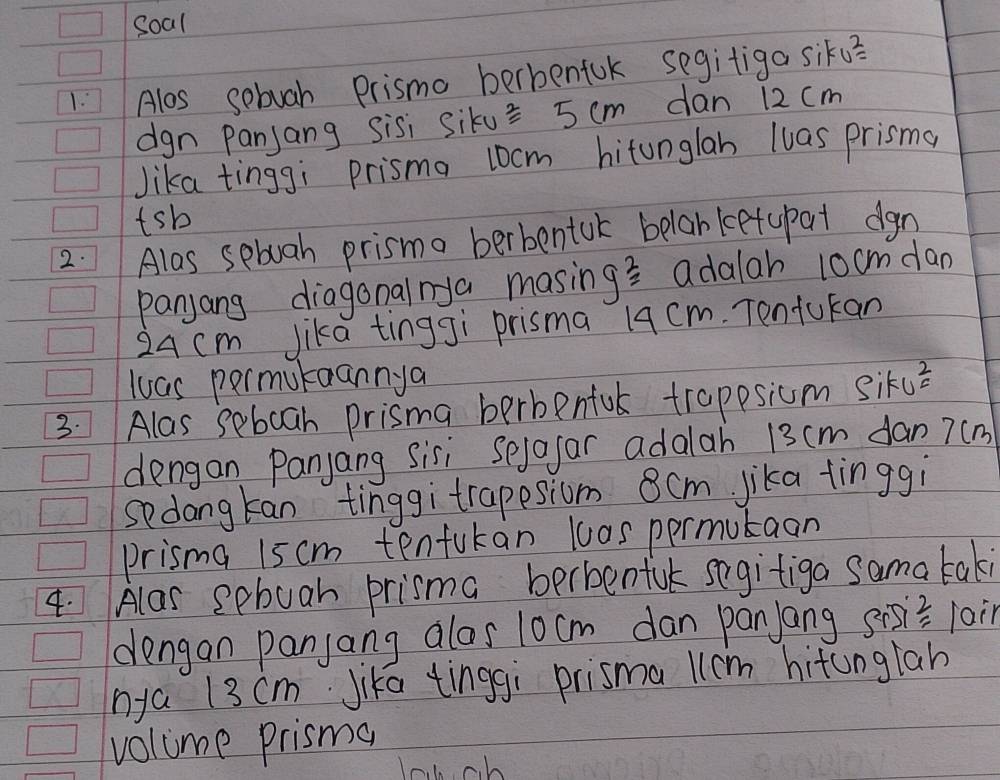 soal
1. Alas sebuah Prisma berbentuk segitiga siku²
dgn panjang sisi siku² 5 cm dan 12 cm
Jika tinggi prisma 10cm hitunglah luas prisma
tsb
2. Alas sebuah prisma berbentuk belah ketupat dgn
panjang diagonalnya masing² adalah 10 cm dan
24 cm Jika tinggi prisma 14 cm. Tentukan
luas permukaannya
3. Alas sebuah prisma berbentuk trapesium siku²
dengan panjang sisi sejajar adalah 13 cm dan 7 cm
sedangkan tinggi trapesium 8cm. jika tinggi
prisma 15 cm tentukan luas permukaan
4. Alas sebuah prisma berbentuk segitiga sama kaki
dengan panjang alas 10 cm dan panjang sisi² lain
nya 13 cm. Jika tinggi prisma 11cm hitunglah
volume prisma